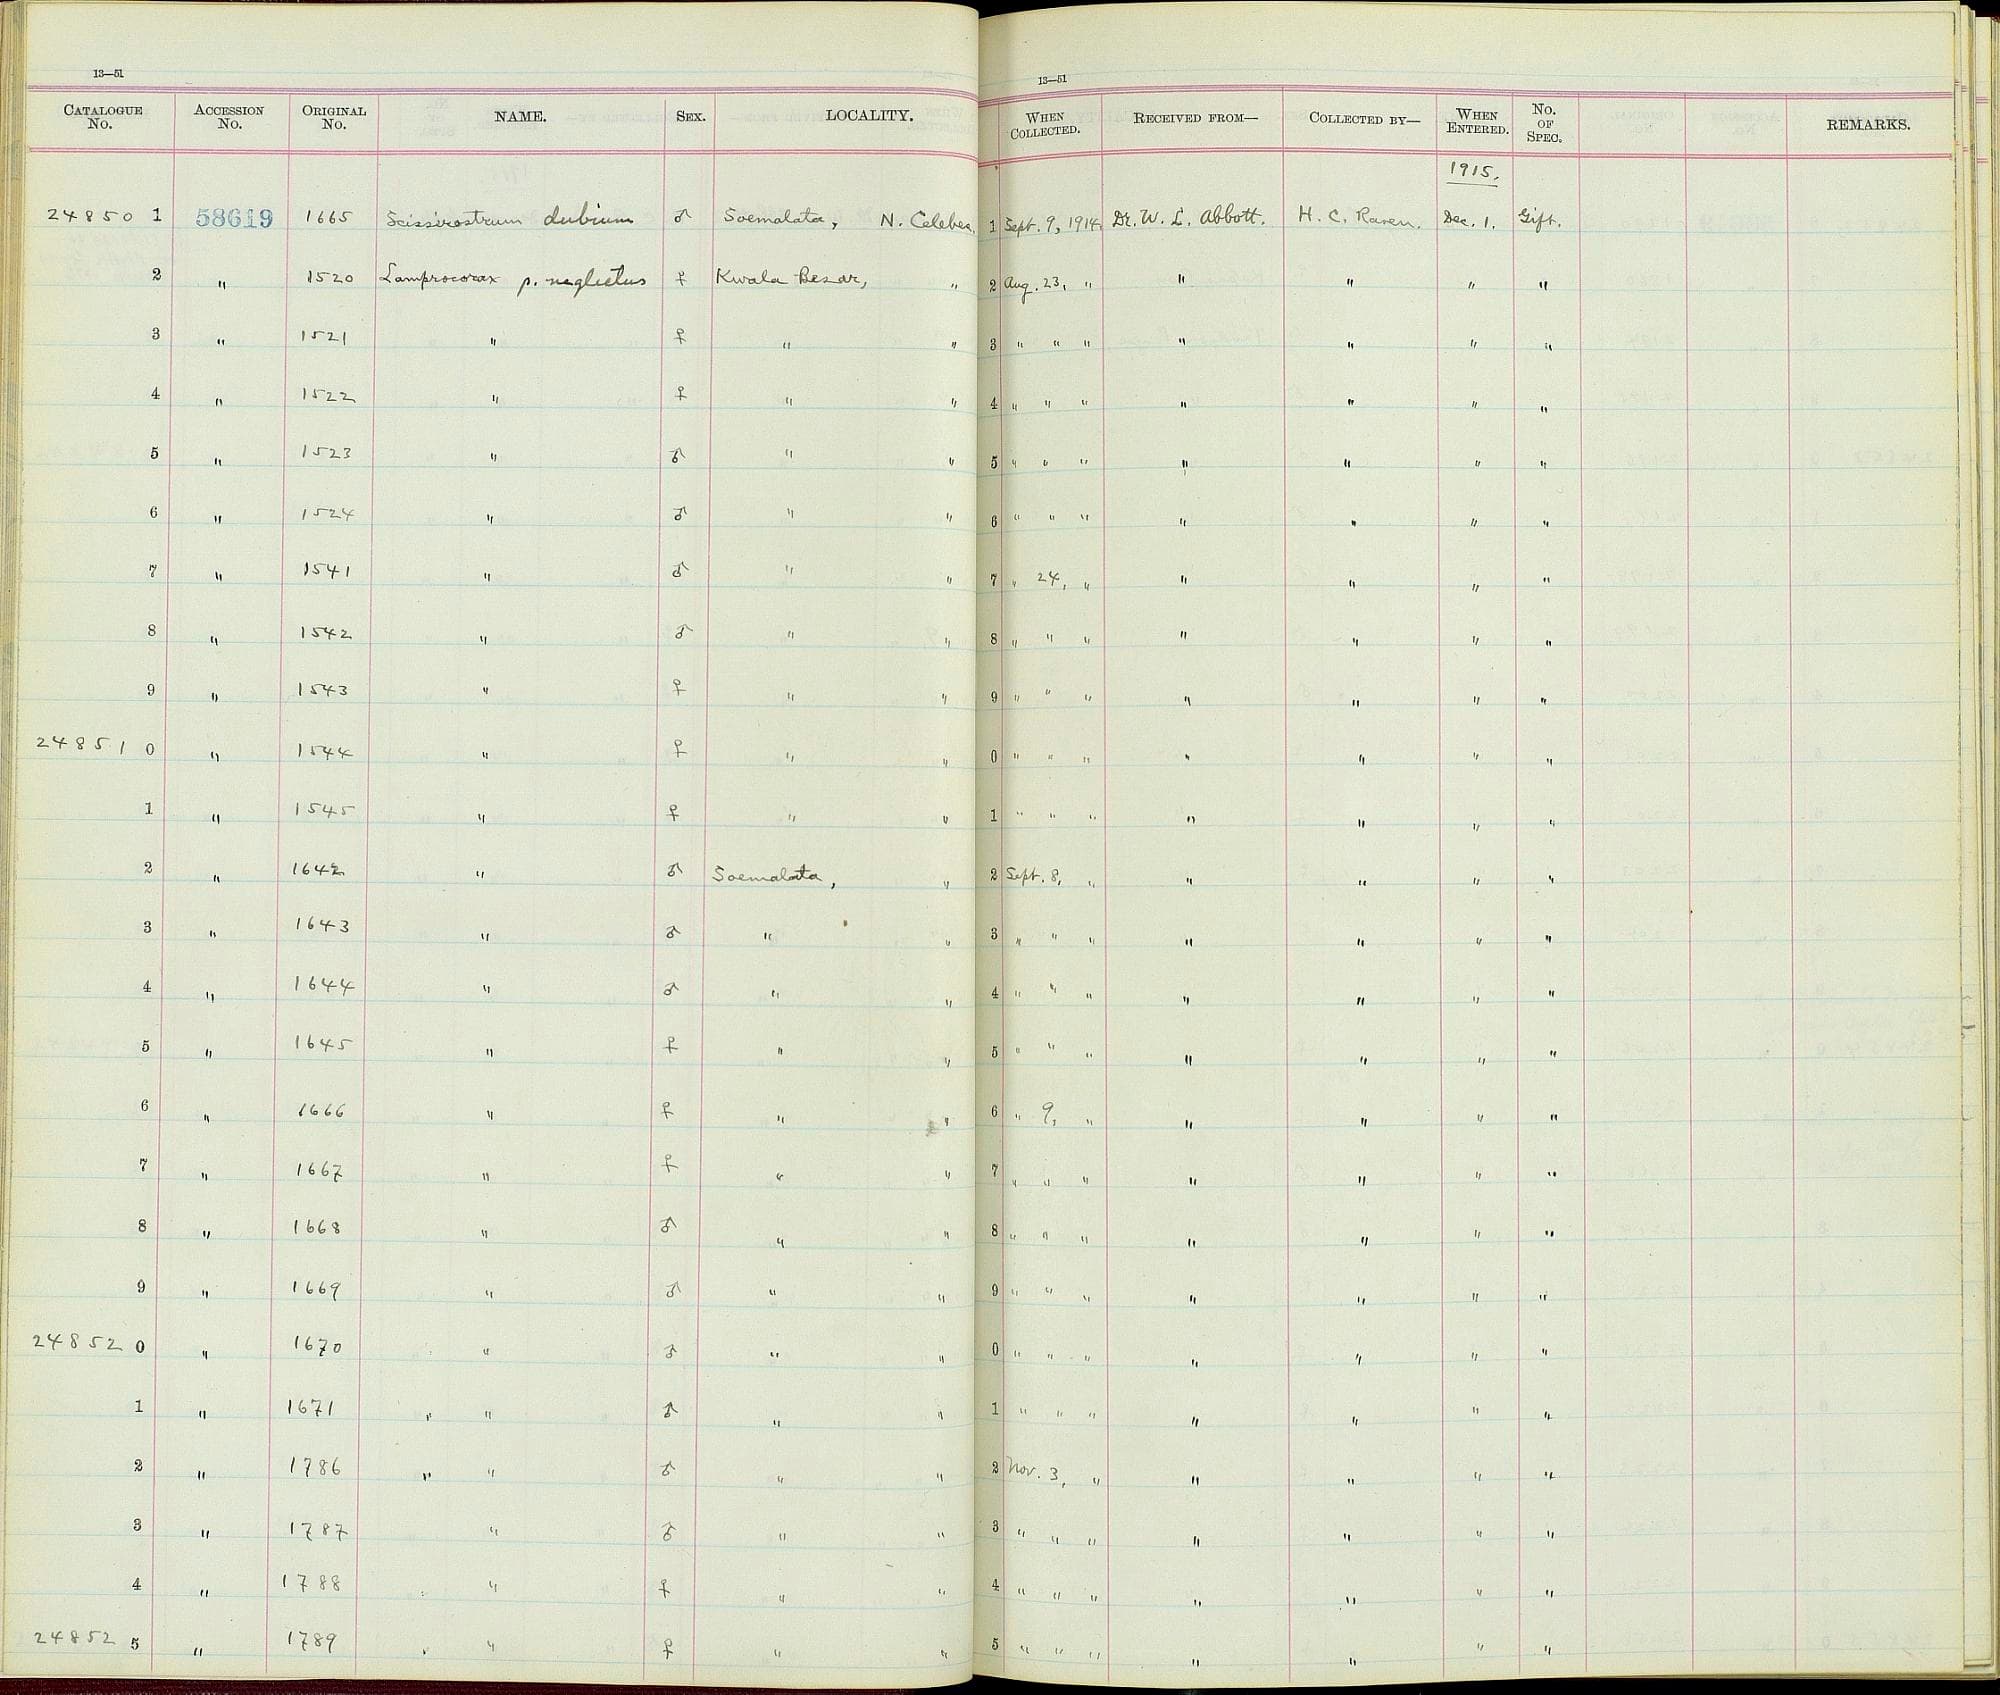 13—51 13—51
CATALOGUE No. ACCESSION No. ORIGINAL No. NAME. SEX. LOCALITY. WHEN COLLECTED. RECEIVED FROM— COLLECTED BY— WHEN ENTERED. No. OF SPEC. REMARKS.
1915.
24850 1 58619 1665 Scissirostrum dubium ♂ Soemalata, N. Celebes. 1 Sept. 9, 1914. Dr. W. L. Abbott. H. C. Raven. Dec. 1. Gift.
2 " 1520 Lamprocorax p. neglectus ♀ Kwala Besar, " 2 Aug. 23, " " " " "
3 " 1521 " ♀ " " 3 " " " " " " "
4 " 1522 " ♀ " " 4 " " " " " " "
5 " 1523 " ♂ " " 5 " " " " " " "
6 " 1524 " ♂ " " 6 " " " " " " "
7 " 1541 " ♂ " " 7 " 24, " " " " "
8 " 1542 " ♂ " " 8 " " " " " " "
9 " 1543 " ♀ " " 9 " " " " " " "
24851 0 " 1544 " ♀ " " 0 " " " " " " "
1 " 1545 " ♀ " " 1 " " " " " " "
2 " 1642 " ♂ Soemalata, " 2 Sept. 8, " " " " "
3 " 1643 " ♂ " " 3 " " " " " " "
4 " 1644 " ♂ " " 4 " " " " " " "
5 " 1645 " ♀ " " 5 " " " " " " "
6 " 1666 " ♀ " " 6 " 9, " " " " "
7 " 1667 " ♀ " " 7 " " " " " " "
8 " 1668 " ♂ " " 8 " " " " " " "
9 " 1669 " ♂ " " 9 " " " " " " "
24852 0 " 1670 " ♂ " " 0 " " " " " " "
1 " 1671 " " ♂ " " 1 " " " " " " "
2 " 1786 " " ♂ " " 2 Nov. 3, " " " " "
3 " 1787 " ♂ " " 3 " " " " " " "
4 " 1788 " ♀ " " 4 " " " " " " "
24852 5 " 1789 " ♀ " " 5 " " " " " " "